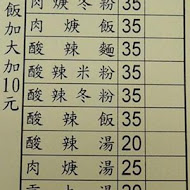 肉羹冬粉 35
肉羹飯 35
酸辣麵 35
酸辣米粉 35
酸辣冬粉 35
酸辣飯 35
酸辣湯 20
肉羹湯 25
貢丸湯 20
飯加大加10元